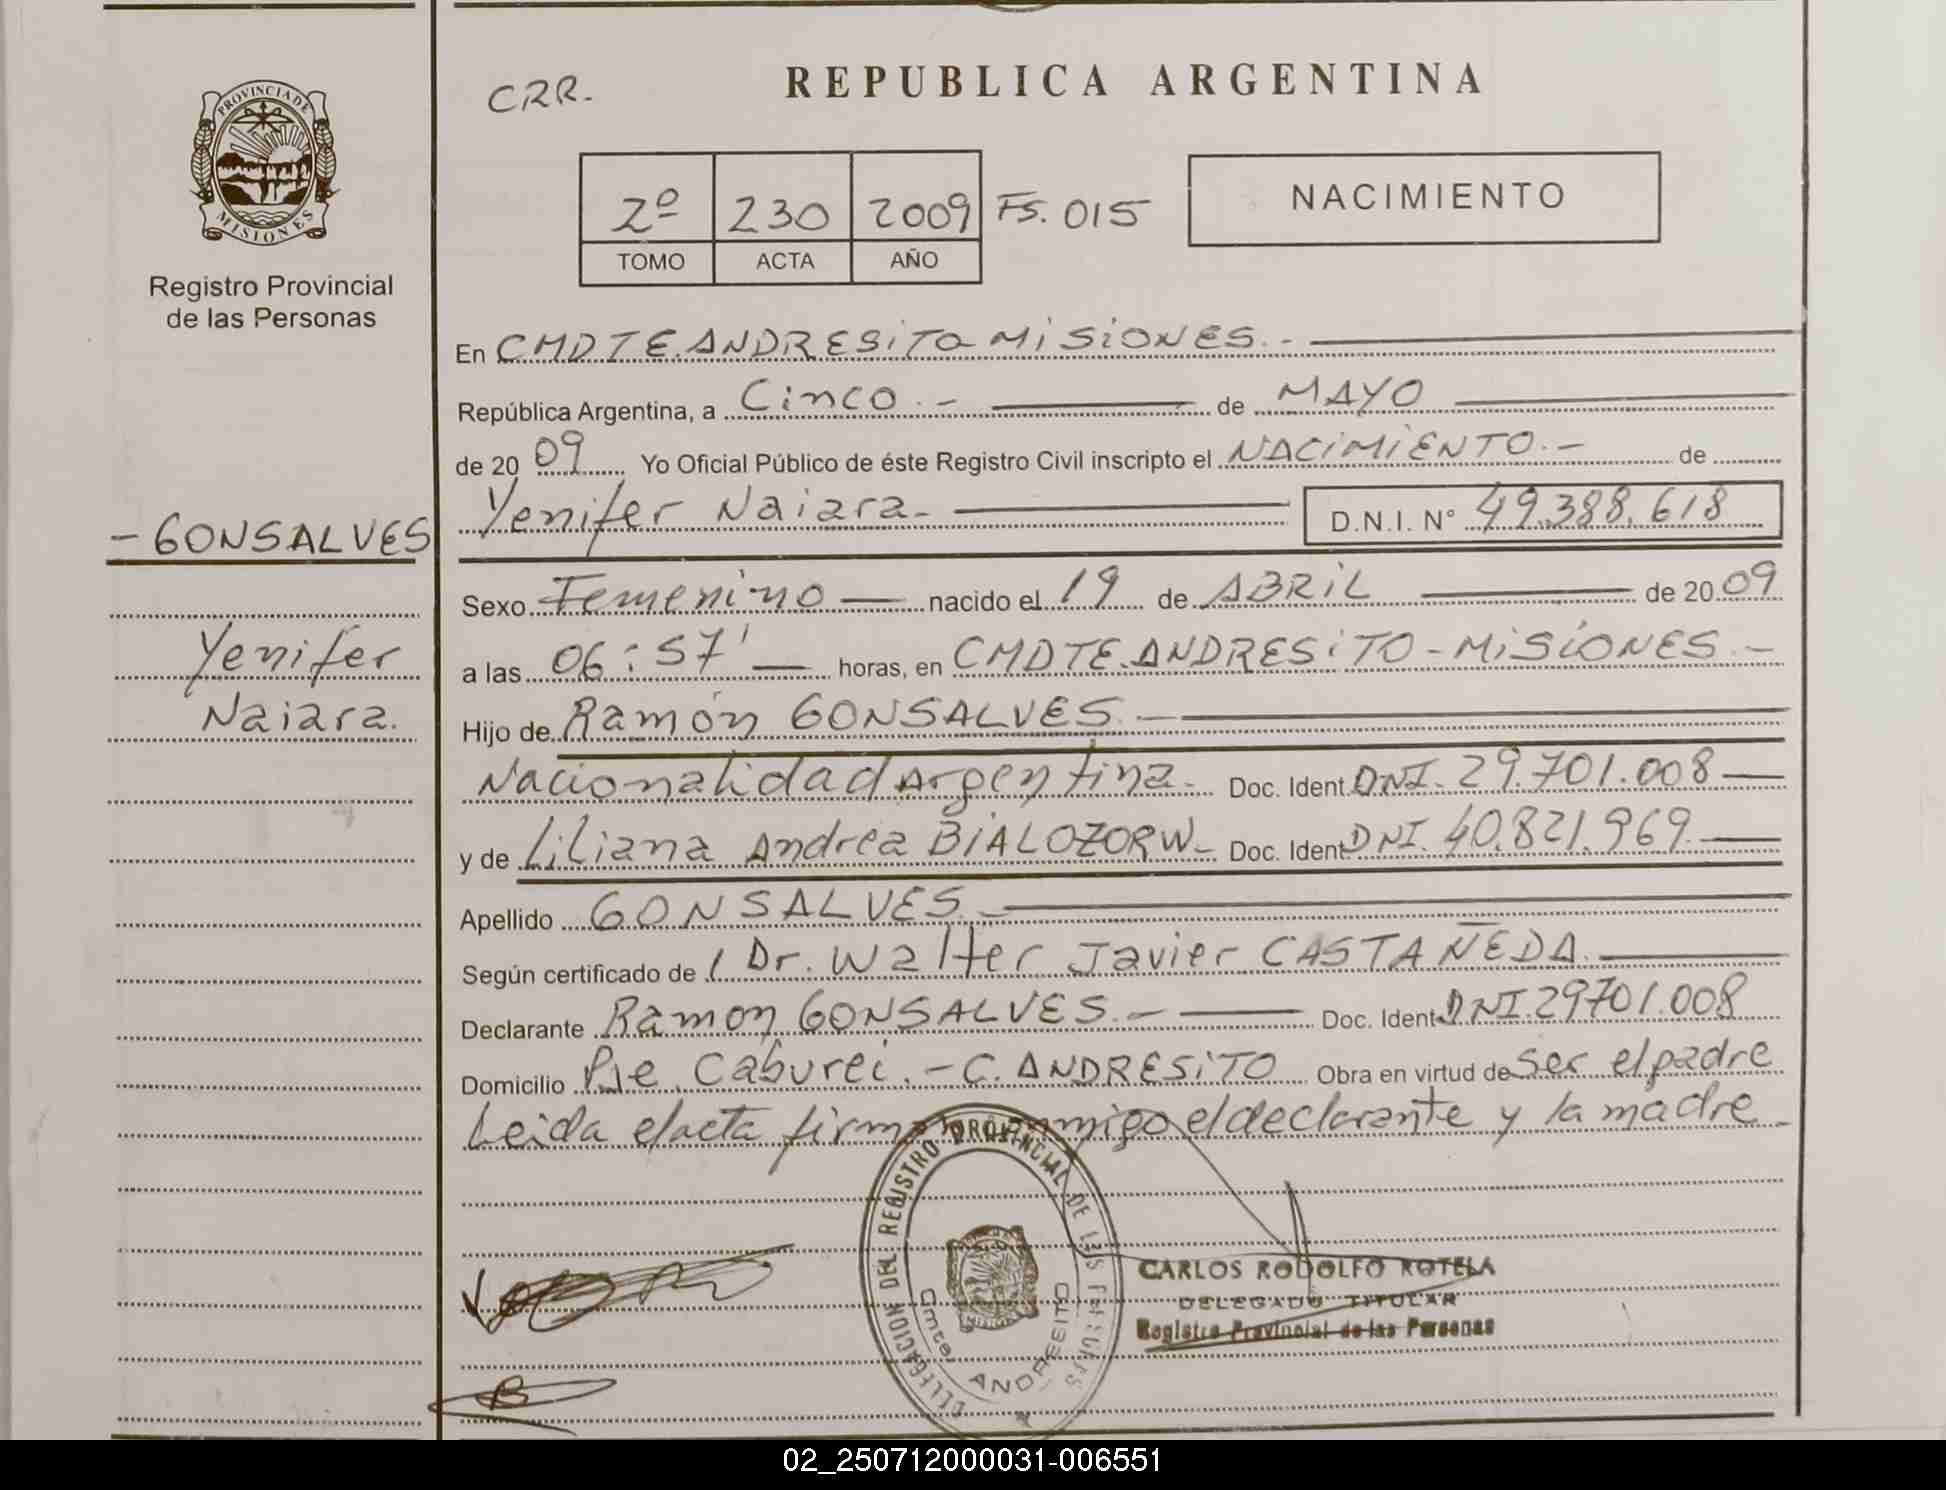 PROVINCIA DE
MISIONES
Registro Provincial
de las Personas
- GONSALVES
Yenifer
Naiara.
CRR.
REPUBLICA ARGENTINA
2º 230 2009 FS. 015
TOMO ACTA AÑO
NACIMIENTO
En CMDTE. ANDRESiTO MiSiONES.-
República Argentina, a Cinco.- de MAYO
de 20 09 Yo Oficial Público de éste Registro Civil inscripto el NACiMiENTO.- de
Yenifer Naiara- D.N.I. Nº 49.388.618
Sexo Femenino nacido el 19 de ABRiL de 20 09
a las 06:57' horas, en CMDTE. ANDRESiTO - MiSiONES.-
Hijo de Ramón GONSALVES.-
Nacionalidad Argentina. Doc. Ident. DNI. 29.701.008
y de Liliana Andrea BIALOZORW- Doc. Ident. DNI. 40.821.969.
Apellido GONSALVES.-
Según certificado de / Dr. Walter Javier CASTAÑEDA.
Declarante Ramon GONSALVES.- Doc. Ident. DNI. 29701.008
Domicilio Pje. Caburei.- C. ANDRESiTO Obra en virtud de Ser el padre
Leida el acta firman conmigo el declarante y la madre
DELEGACION DEL REGISTRO PROVINCIAL DE LAS PERSONAS
Cmte. ANDRESITO
MISIONES
CARLOS RODOLFO ROTELA
DELEGADO TITULAR
Registro Provincial de las Personas
02_250712000031-006551